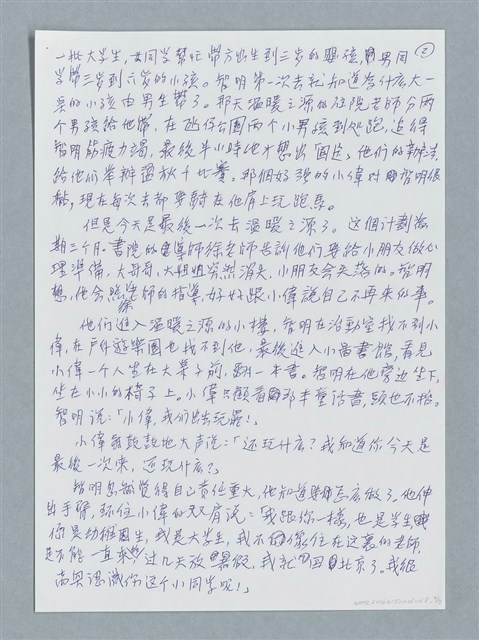 ②
一批大学生,女同学帮忙带方出生到三岁的婴孩,男同
学带三岁到六岁的小孩。智明第一次去就知道为什么大一
点的小孩由男生带了。那天温暖之源的住院老师分两
个男孩给他带,在 公园两个小男孩到处跑,追得
智明筋疲力竭,最後半小時他才想出 困住他们的办法,
给他们举辦 比賽。那個好强的小偉对 智明很
黏,现在每次去都要騎在他肩上玩跑馬。
但是今天是最後一次去温暖之源了。这個计劃為
期三个月。書院的 導師徐老师告訴他们要给小朋友做心
理準備,大哥哥,大姐姐突然消失,小朋友会失落的。智明
想,他会照徐老师的指導,好好跟小偉說自己不再来的事。
他们進入温暖之源的小樓,智明在活動室找不到小
偉,在户外遊樂園也找不到他,最後進入小圖書館,看見
小偉一个人坐在大桌子前,翻一本書。智明在他旁边坐下,
坐在小小的椅子上。小偉只顧看那本童话書,頭也不抬。
智明说:「小偉,我们出去玩罷!」
小偉氣鼓鼓地大声说:「还玩什么?我知道你今天是
最後一次来,还玩什么?」
智明忽然覺得自己责任重大,他知道 怎么做了。他伸
出手臂,环住小偉的双肩说:「我跟你一樣,也是学生
你是幼稚園生,我是大学生,我不像住在这裏的老师,
是不能一直来。过几天放暑假,我就回北京了。我很
高興認識你这个小同学呢!」